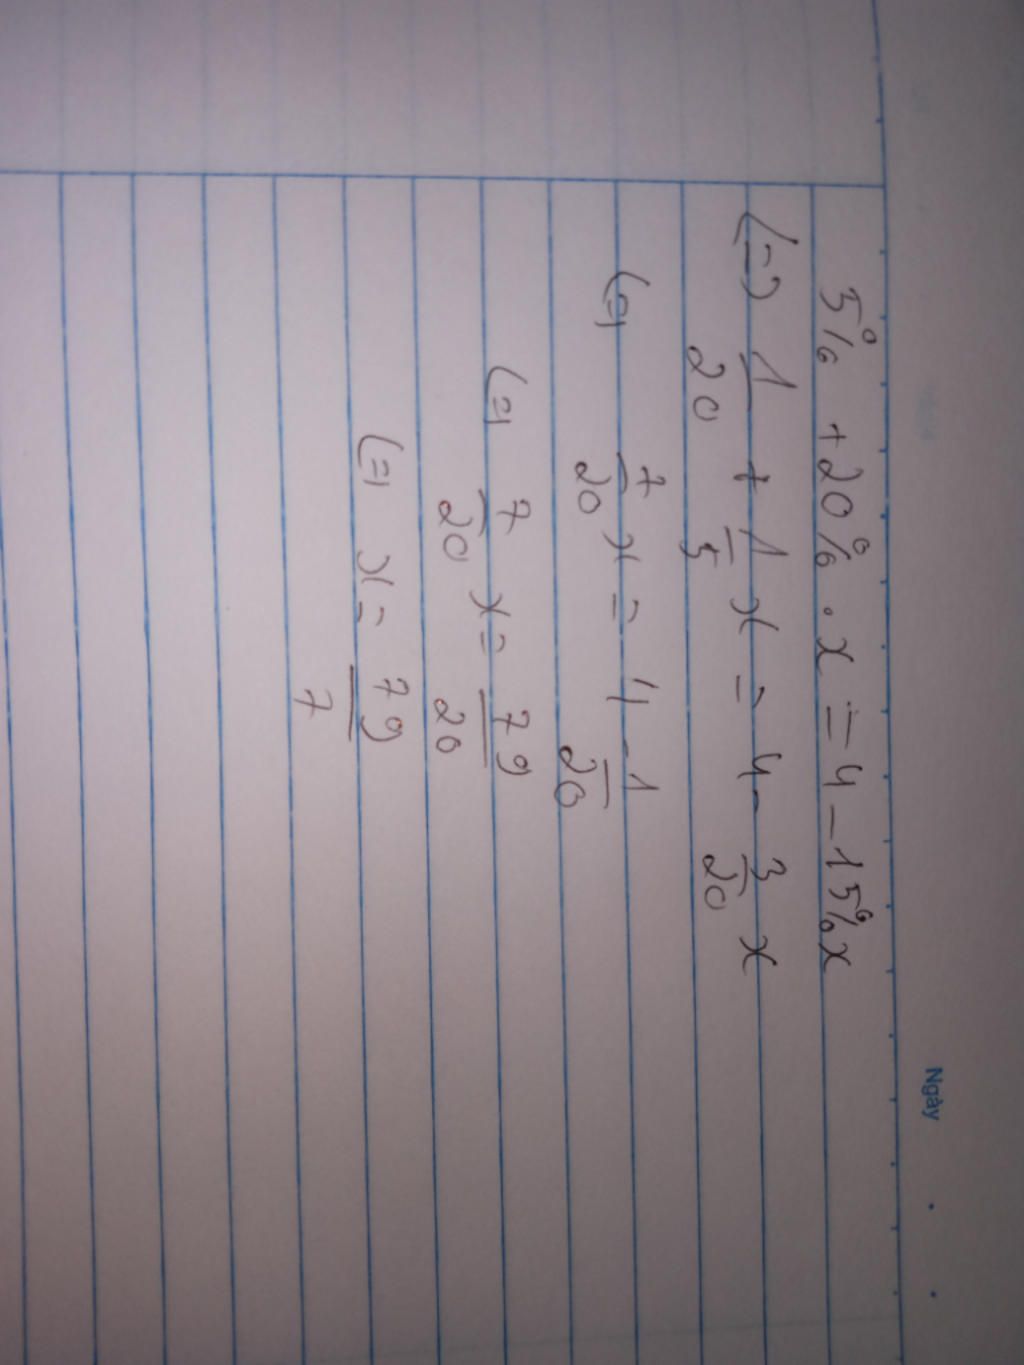 Ngày
5% + 20% . x = 4 - 15% x
(=) 1/20 + 1/5 x = 4 - 3/20 x
(=) 7/20 x = 4 - 1/20
(=) 7/20 x = 79/20
(=) x = 79/7